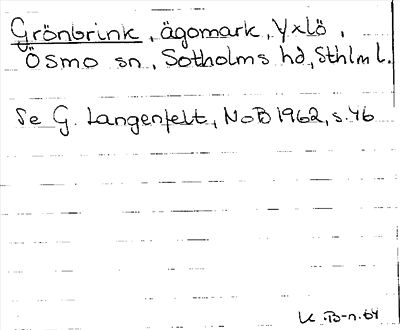 Grönbrink, ägomark, Yxlö,
Ösmo sn, Sotholms hd, Sthlm l.
Se G. Langenfelt, NoB 1962, s. 46
K. B-n. 64